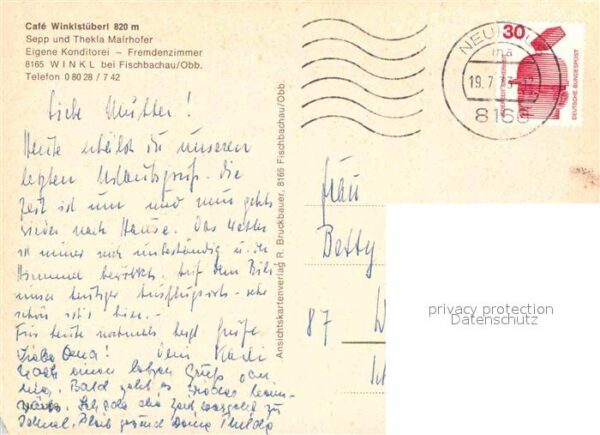 Café Winklstüberl 820 m
Sepp und Thekla Mairhofer
Eigene Konditorei – Fremdenzimmer
8165 WINKL bei Fischbachau/Obb.
Telefon 0 80 28 / 7 42
Liebe Mutter!
Heute erhälst du unseren
letzten Urlaubsgruß. die
Zeit ist um und nun gehts
wieder nach Hause. Das Wetter
ist immer noch unbeständig u. der
Himmel bewölkt. Auf dem Bild
unser heutiger Ausflugsort - sehr
schön ist's hier. -
Für heute nochmals herzl. Grüße
Dein Karli
Liebe Oma!
Noch einen lieben Gruß von
mir. Bald geht es wieder heim-
wärts. Schade die Zeit vergeht zu
schnell. Bleib gesund Deine Thilde
Ansichtskartenverlag R. Bruckbauer, 8165 Fischbachau/Obb.
NEUHAUS
19.7.73
8166
30
DEUTSCHE BUNDESPOST
Frau
Betty
87 W
privacy protection
Datenschutz